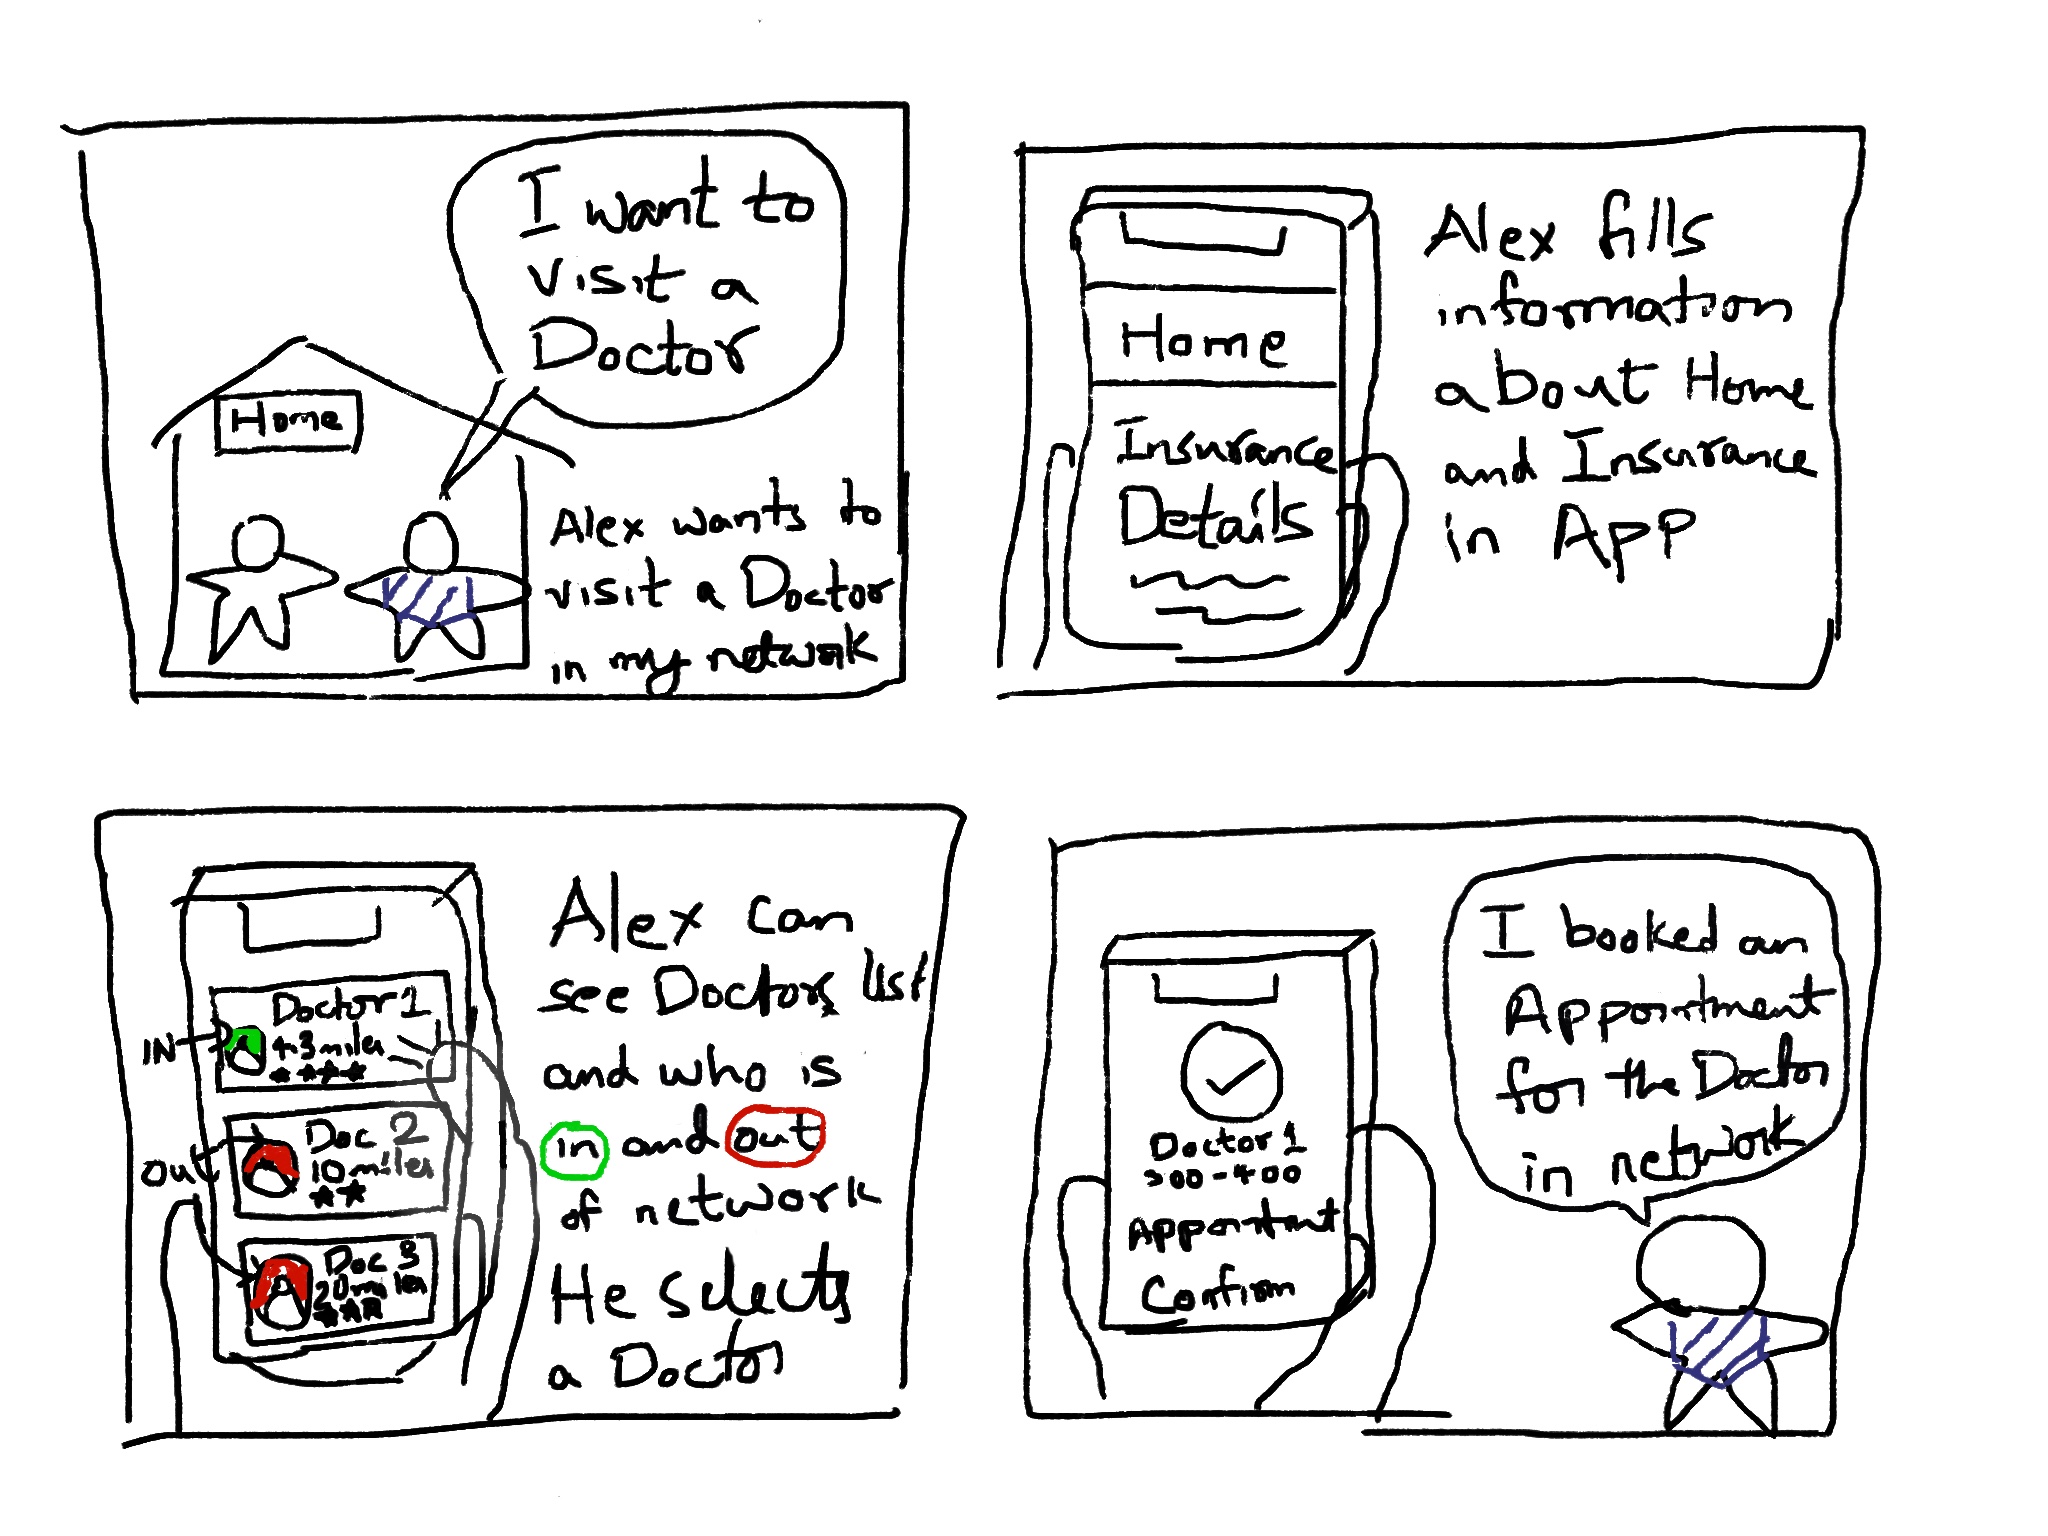 I want to
visit a
Doctor
Home
Alex wants to
visit a Doctor
in my network
Home
Insurance
Details
Alex fills
information
about Home
and Insurance
in App
Doctor 1
4.3 miles
IN
Doc 2
10 miles
out
Doc 3
20 miles
Alex can
see Doctors list
and who is
in and out
of network
He selects
a Doctor
Doctor 1
300-400
Appointmnt
Confirm
I booked an
Appointment
for the Doctor
in network